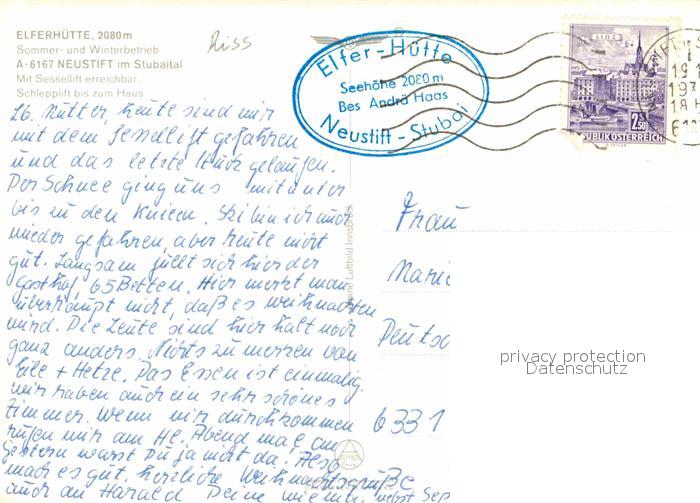 ELFERHÜTTE, 2080 m
Sommer- und Winterbetrieb
A-6167 NEUSTIFT im Stubaital
Mit Sessellift erreichbar.
Schlepplift bis zum Haus
Riss
Elfer-Hütte
Seehöhe 2080 m
Bes Andrä Haas
Neustift - Stubai
LINZ
2.50
REPUBLIK ÖSTERREICH
Lb. Mutter, heute sind wir
mit dem Sessellift gefahren
und das letzte Stück gelaufen.
Der Schnee ging uns mitunter
bis zu den Knieen. Ski bin ich auch
wieder gefahren, aber heute nicht
gut. Langsam füllt sich hier der
Gasthof, 65 Betten. Hier merkt man
überhaupt nicht, daß es weihnachten
wird. Die Leute sind hier halt noch
ganz anders. Nichts zu merken von
Eile + Hetze. Das Essen ist einmalig.
wir haben auch ein sehr schönes
Zimmer. Wenn wir durchkommen
rufen wir am Hl. Abend mal an
Gestern warst Du ja nicht da. Also
mach es gut. herzliche Weihnachtsgrüße
auch an Harald Deine nebst Sep
Luftbild Innsbruck
Frau
Marie
Deutsc
633 1
privacy protection
Datenschutz